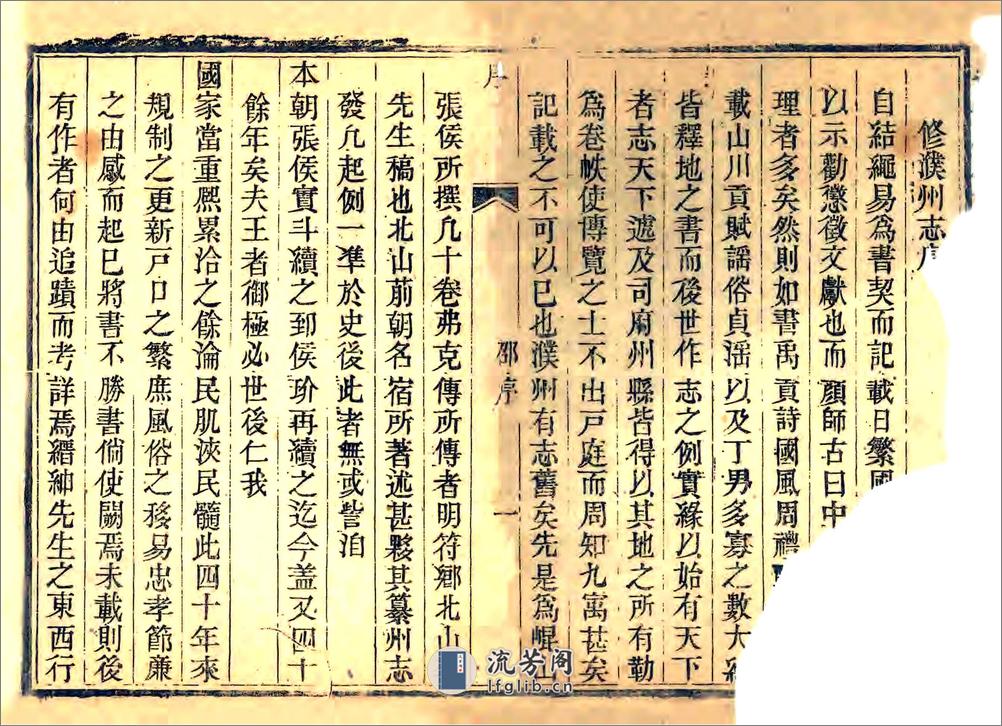 修濮州志序
自結繩易爲書契而記載日繁國
以示勸懲徵文獻也而顏師古曰中
理者多矣然則如書禹貢詩國風周禮
載山川貢賦謠俗貞淫以及丁男多寡之數大
皆釋地之書而後世作志之例實緣以始有天下
者志天下遞及司府州縣皆得以其地之所有勒
爲卷帙使博覽之士不出戸庭而周知九寓甚矣
記載之不可以已也濮州有志舊矣先是爲崐山
序
邵序
一
張侯所撰凡十卷弗克傳所傳者明符鄉北山
先生稿也北山前朝名宿所著述甚夥其纂州志
發凡起例一準於史後此者無或訾洎
本朝張侯實斗續之郅侯玠再續之迄今盖又四十
餘年矣夫王者御極必世後仁我
國家當重熙累洽之餘淪民肌浹民髓此四十年來
規制之更新戸口之繁庶風俗之移易忠孝節廉
之由感而起已將書不勝書倘使闕焉未載則後
有作者何由追蹟而考詳焉縉紳先生之東西行
流芳阁
lfglib.cn